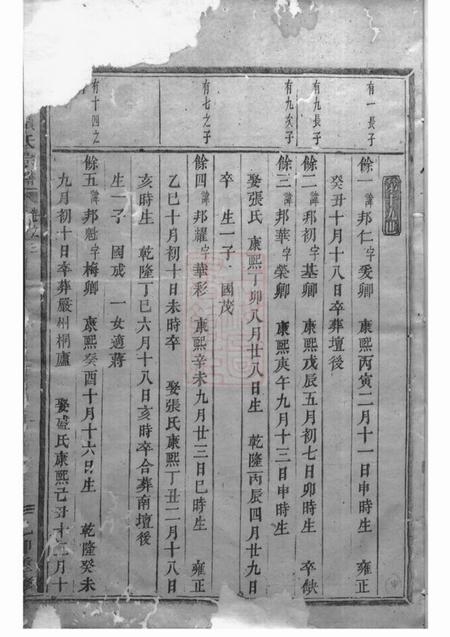 有一長子
有九長子
有九次子
有七之子
有十四之
第十九世
餘一諱邦仁字爰卿 康熙丙寅二月十一日申時生 雍正
癸丑十月十八日卒葬壇後
餘二諱邦初字基卿 康熙戊辰五月初七日卯時生 卒缺
餘三諱邦華字榮卿 康熙庚午九月十三日申時生
娶張氏 康熙丁卯八月廿八日生 乾隆丙辰四月廿九日
卒 生一子 國茂
餘四諱邦耀字華彩 康熙辛未九月廿三日巳時生 雍正
乙巳十月初十日未時卒 娶張氏康熙丁丑二月十八日
亥時生 乾隆丁巳六月十八日亥時卒合葬南壇後
生一子 國成 一女適蔣
餘五諱邦魁字梅卿 康熙癸酉十月十六日生 乾隆癸未
九月初十日卒葬嚴州桐廬 娶盛氏康熙己丑十二月十